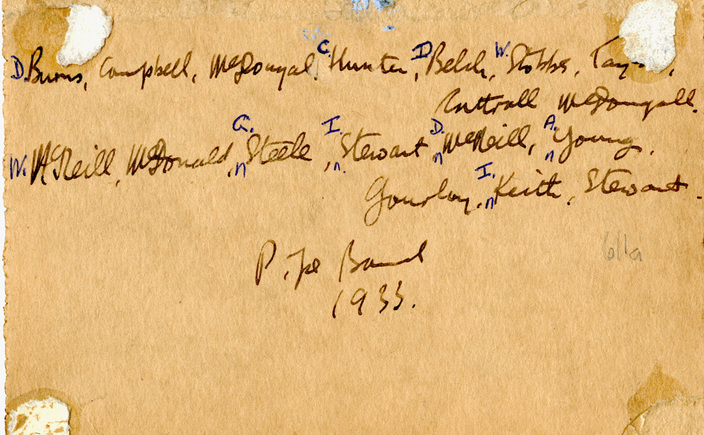 D. Burns, Campbell, McDougal, C. Hunter, D. Belch, W. Stobbs,
McDougall.
W. McNeill, McDonald, G. Steele, I. Stewart, D. McNeill, A. Young,
Gourlay, I. Keith, Stewart.
Pipe Band
1933.
61a